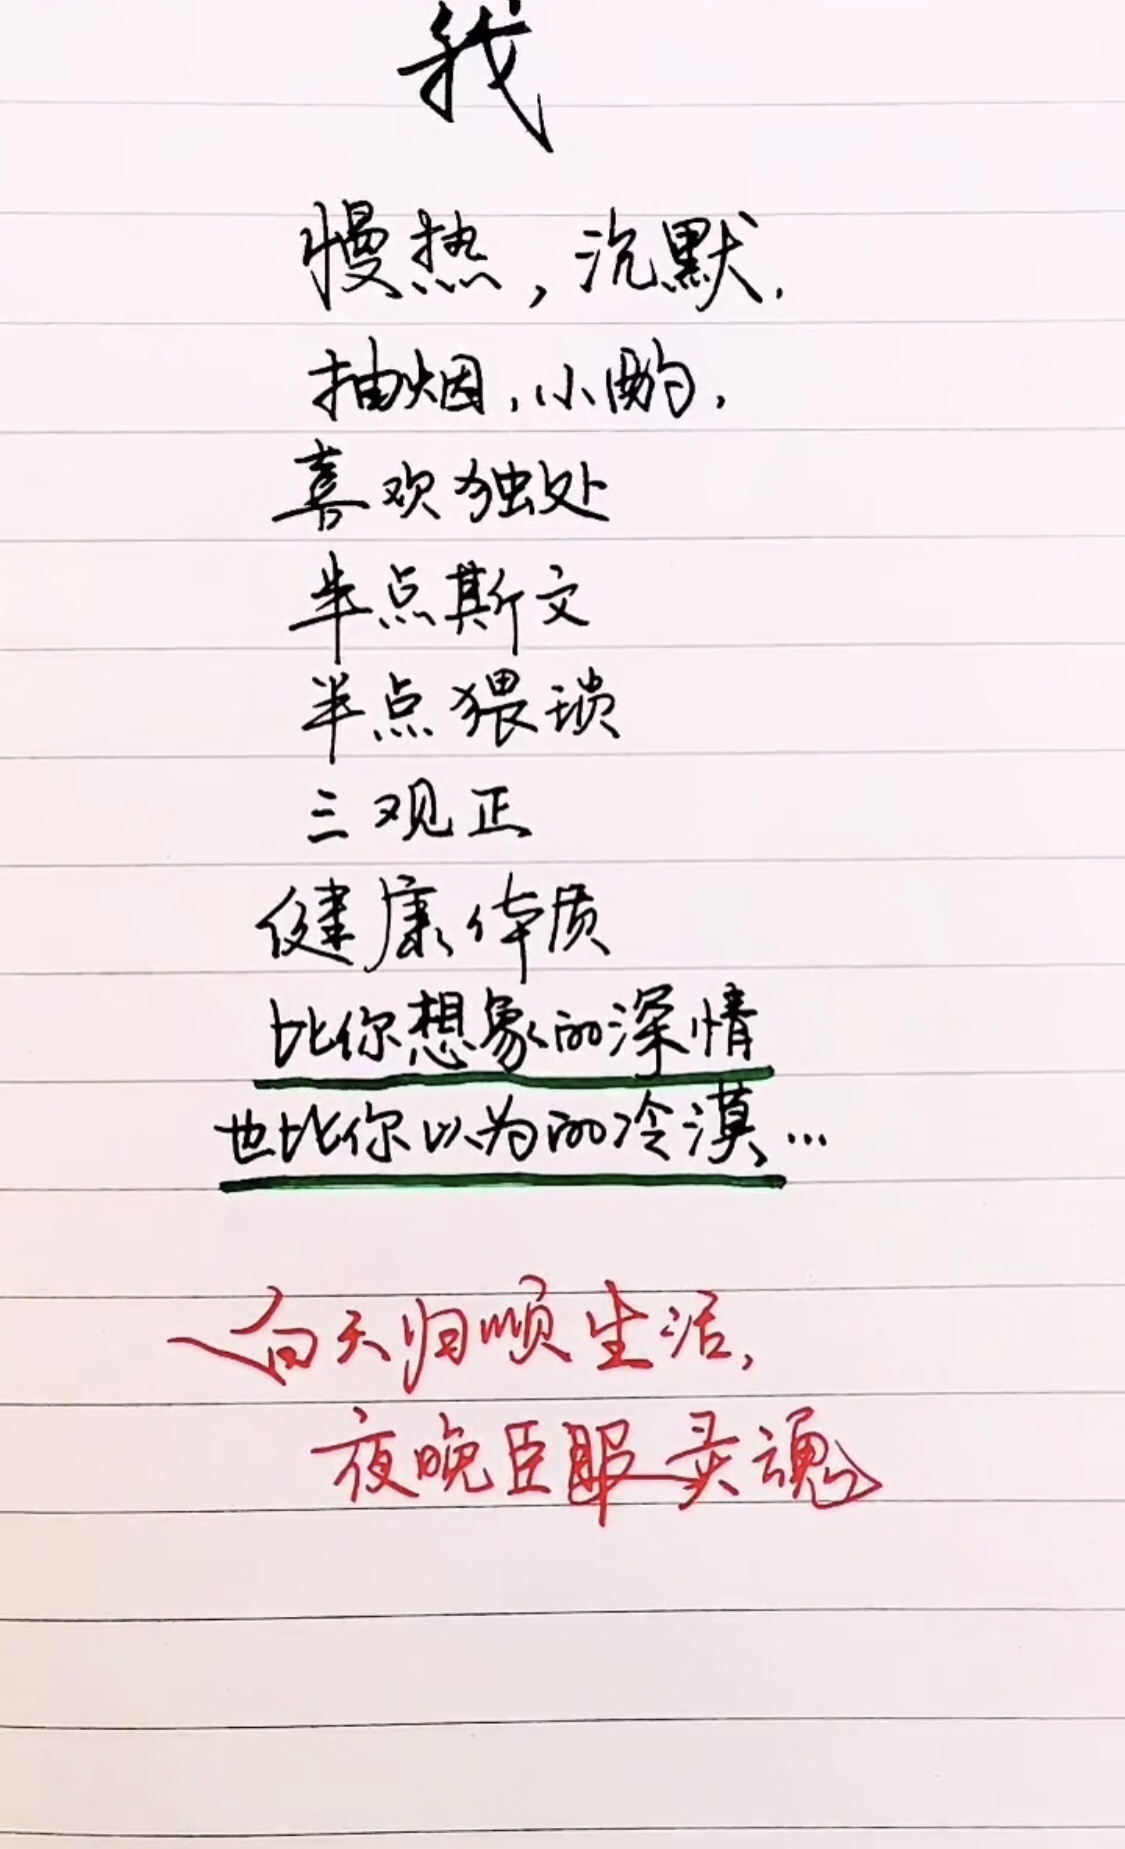 我
慢热,沉默.
抽烟,小酌,
喜欢独处
半点斯文
半点猥琐
三观正
健康体质
比你想象的深情
也比你以为的冷漠...
白天归顺生活,
夜晚臣服灵魂